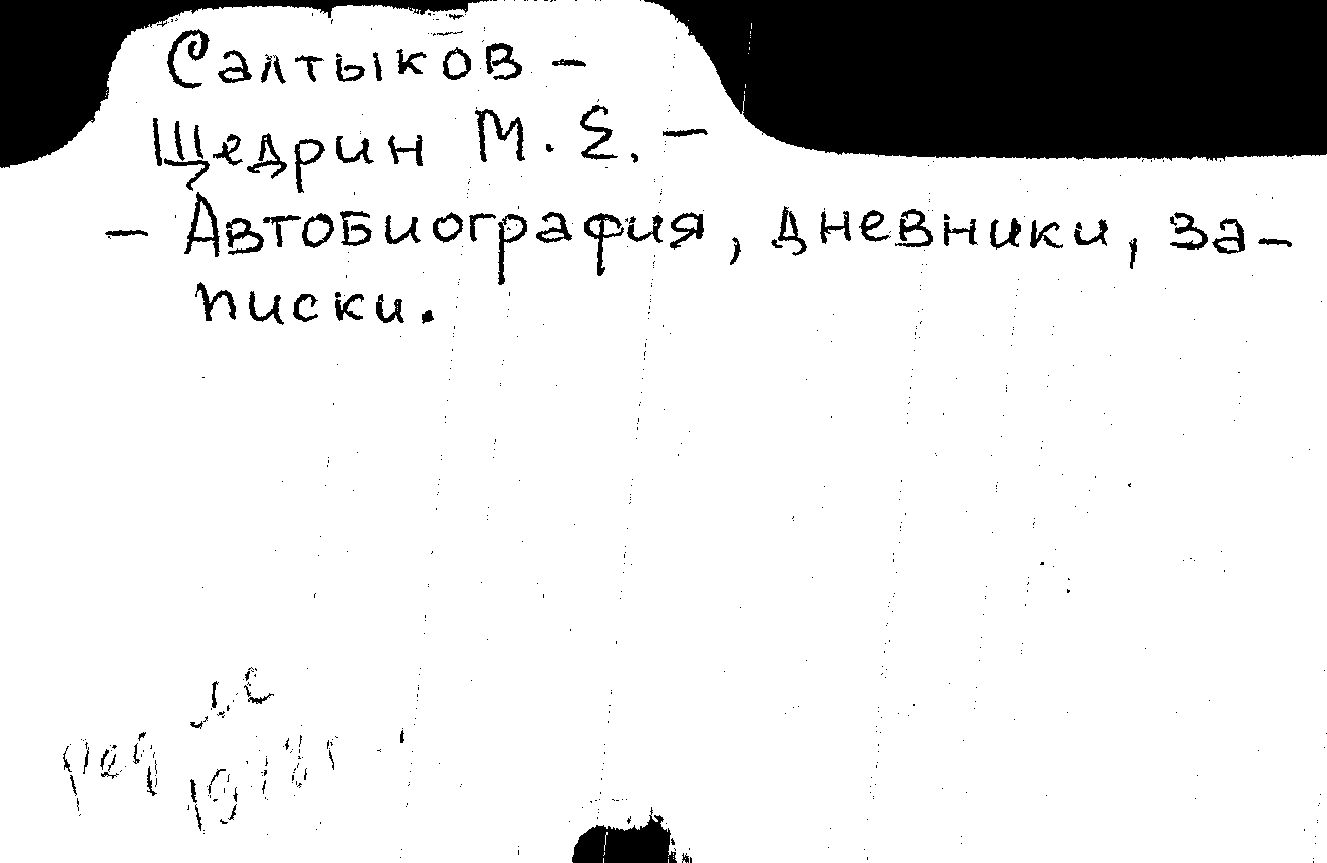 Салтыков –
Щедрин М. Е. –
– Автобиография, дневники, за–
писки.
ред